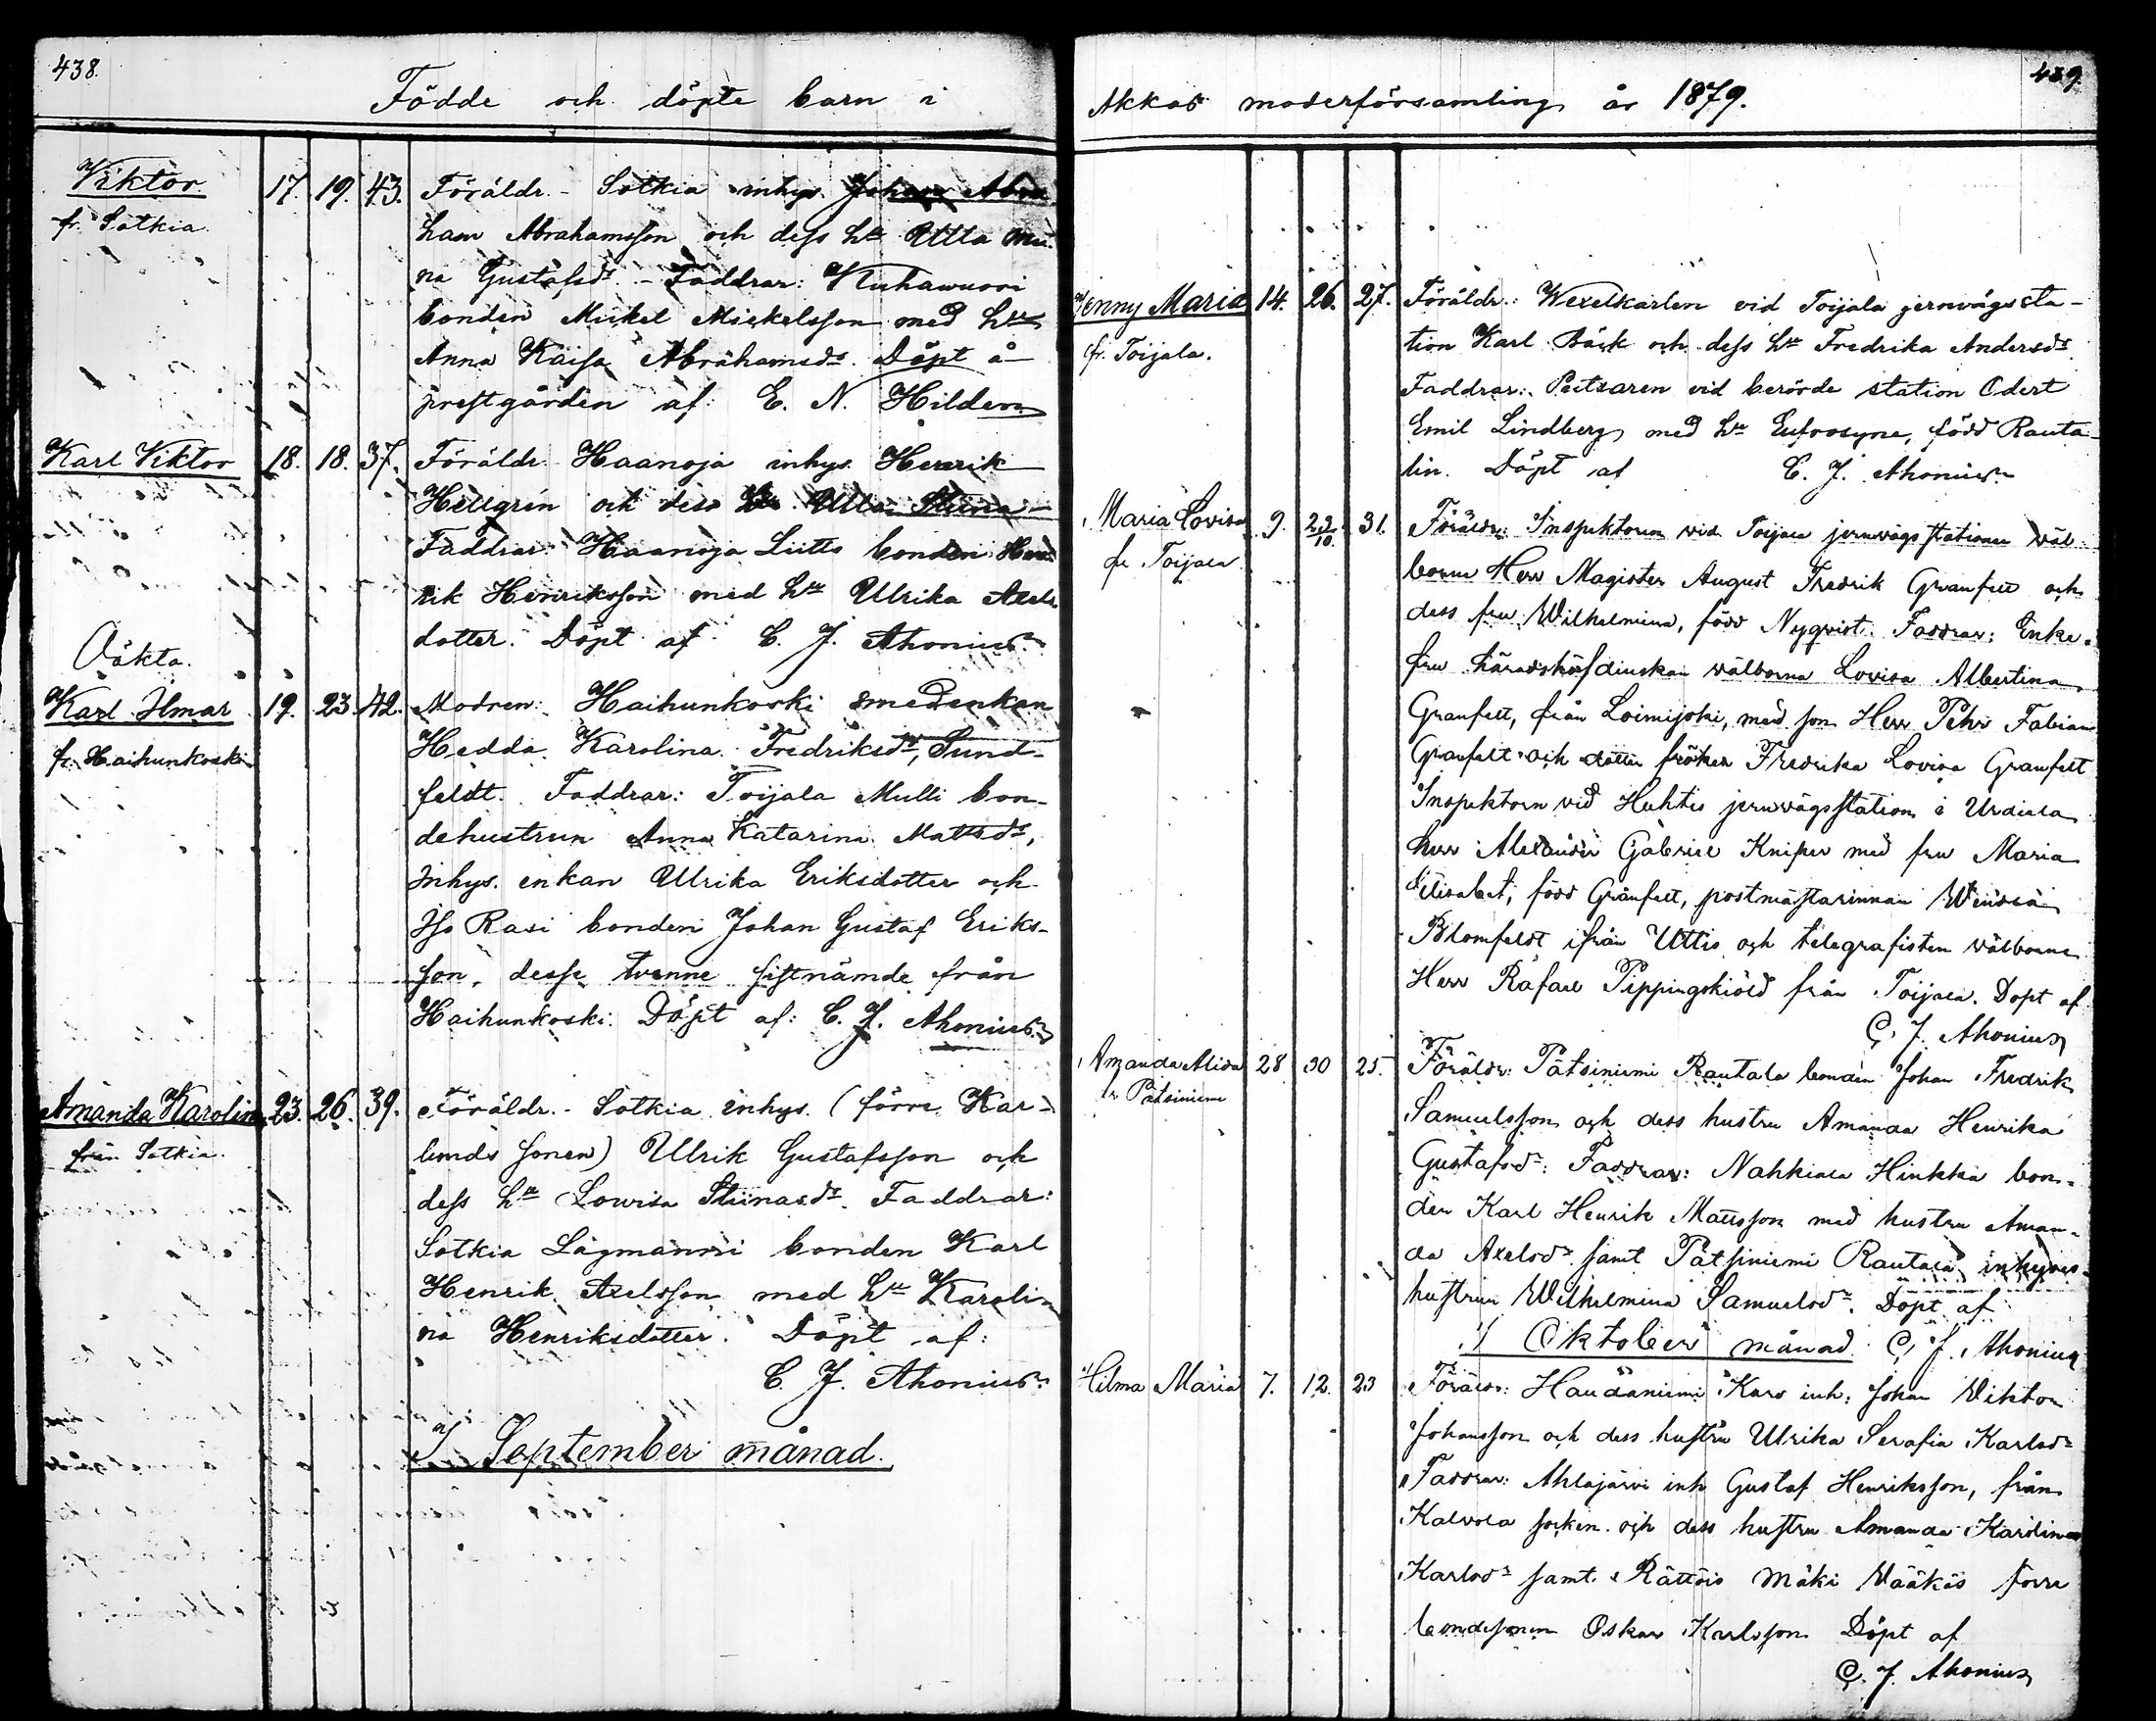 438.
Födde och döpte barn i
Viktor 17. 19. 43. Föräldr. Sotkia inhys. Johan Abra
fr. Sotkia
ham Abrahamsson och dess hu Ulla
na Gustafsdr. Faddrar: Kuhawuori
bonden Mickel Mickelsson med hu
Anna Kaisa Abrahamsdr. Döpt å
prestgården af: E. N. Hilden
Karl Viktor 18. 18. 37. Föräldr. Haanoja inhys. Henrik
Hellgrén och dess hu Ulla Stiina
Faddrar: Haanoja Liitts bonden Hen
rik Henriksson med hu Ulrika Axels
dotter. Döpt af C. J. Ahonius.
Oäkta.
Karl Ilmar 19. 23. 42. Modren: Haihunkoski smedenkan
fr. Haihunkoski
Hedda Karolina Fredriksdr, Sund-
feldt. Faddrar: Toijala Mulli bon-
dehustrun Anna Katarina Mattsdr,
Inhys. enkan Ulrika Eriksdotter och
Iso Rasi bonden Johan Gustaf Eriks-
son, desse tvenne sistnämde från
Haihunkoski. Döpt af: C. J. Ahonius.
Amanda Karolina 23. 26. 39. Föräldr. Sotkia inhys. (förre Kar-
från Sotkia.
lunds sonen) Ulrik Gustafsson och
dess hu Lowisa Stiinasdr. Faddrar:
Sotkia Lagmanni bonden Karl
Henrik Axelsson med hu Karoli-
na Henriksdotter. Döpt af:
C. J. Ahonius.
I September månad.
439.
Akkas moderförsamling år 1879.
Jenny Maria 14. 26. 27. Föräldr.: Wexelkarlen vid Toijala jernvägssta-
fr. Toijala.
tion Karl Bäck och dess hu Fredrika Andersdr.
Faddrar: Putsaren vid berörde station Odert
Emil Lindberg med hu Eufrosyne, född Rauta-
lin. Döpt af C. J. Ahonius.
Maria Lovisa 9. 23/10. 31. Föräldr: Inspektoren vid Toijala jernvägsstation wäl-
fr Toijala
borne Herr Magister August Fredrik Granfelt och
dess fru Wilhelmina, född Nyqvist. Faddrar: Enke-
fru häradshöfdinskan wälborna Lovisa Albertina
Granfelt, från Loimijoki, med son Herr Pehr Fabian
Granfelt och dotter fröken Fredrika Lovisa Granfelt
Inspektorn vid Huhtis jernvägsstation i Urdiala
herr Alexander Gabriel Kniper med fru Maria
Elisabet, född Granfelt, postmästarinnan
Blomfeldt ifrån Uttis och telegrafisten välborne
Herr Rafael Pippingskiöld från Toijala. Döpt af
C. J. Ahonius
Amanda Alida 28 30 25. Föräldr: Pätsiniemi Rautala bonden Johan Fredrik
fr Pätsiniemi
Samuelsson och dess hustru Amanda Henrika
Gustafsdr: Faddrar: Nahkiala Hinkka bon-
den Karl Henrik Mattsson med hustru Aman-
da Axelsdr samt Pätsiniemi Rautala inhyses-
hustrun Wilhelmina Samuelsdr. Döpt af
I Oktober månad. C. J. Ahonius
Hilma Maria 7. 12. 23 Föräldr: Haudaniemi Karo inh: Johan Viktor
Johansson och dess hustru Ulrika Serafia Karlsdr
Faddrar: Ahlajärvi inh Gustaf Henriksson, från
Kalvola socken och dess hustru Amanda Karolina
Karlsdr samt Rättöis Mäki Vääkäs förre
bondesonen Oskar Karlsson Döpt af
C. J. Ahonius